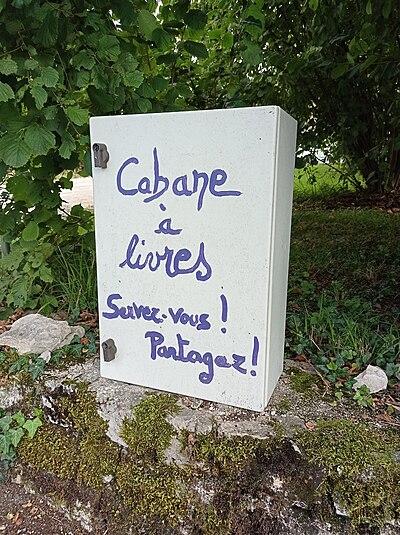 Cabane
à
livres
Servez-vous !
Partagez !